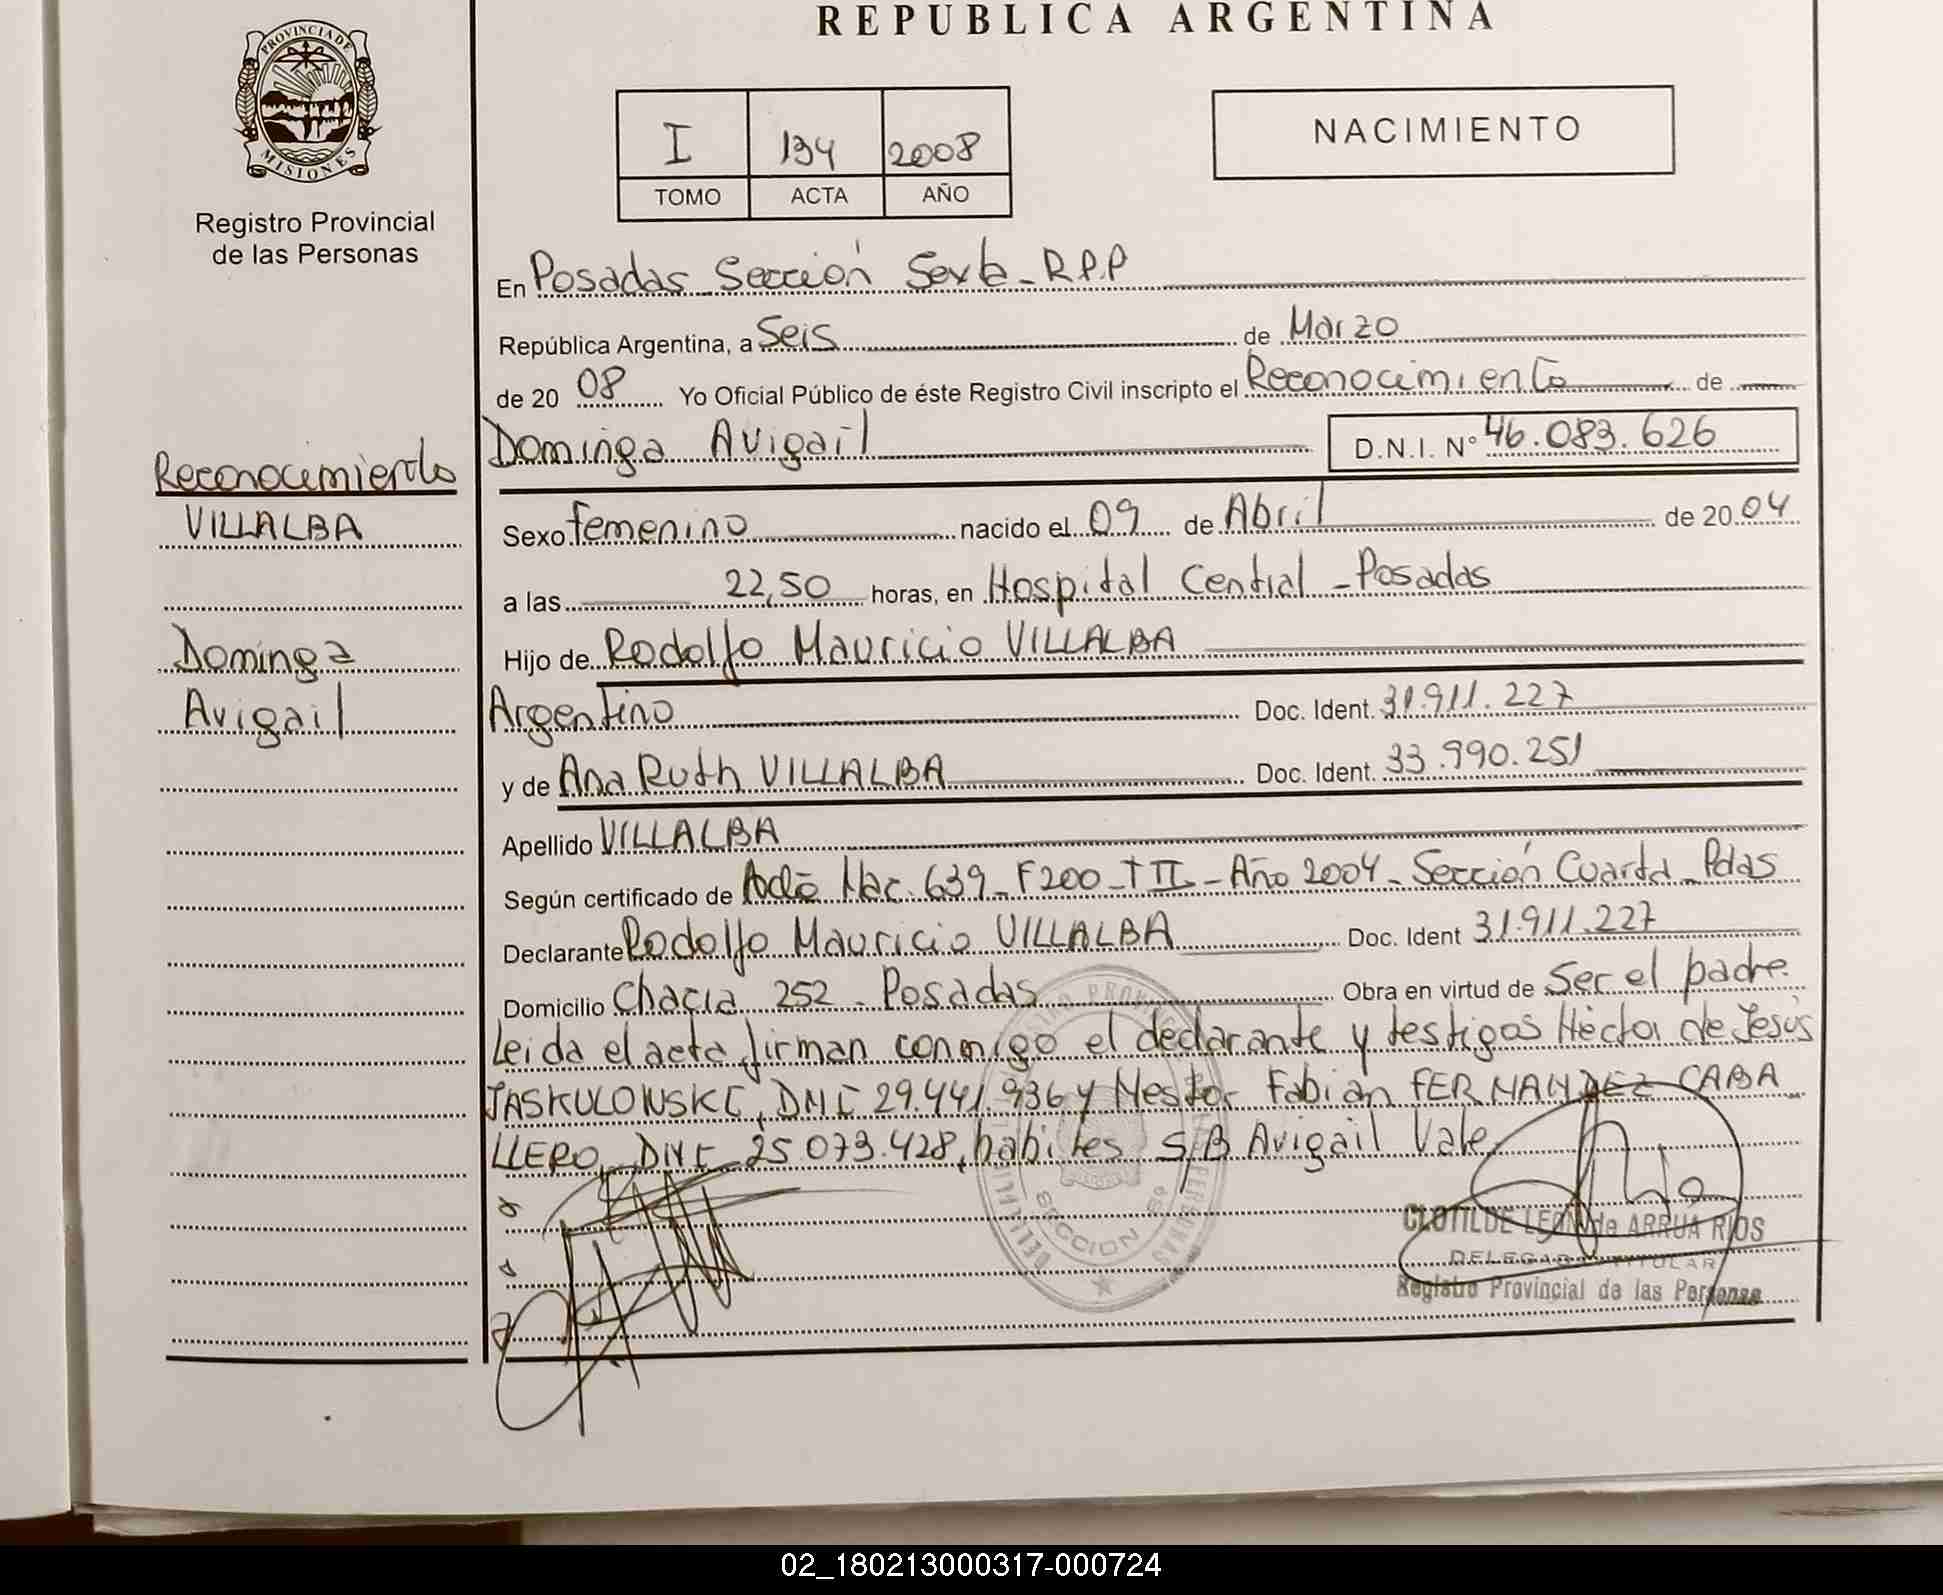 REPUBLICA ARGENTINA
PROVINCIA DE MISIONES
Registro Provincial
de las Personas
I 134 2008
TOMO ACTA AÑO
NACIMIENTO
En Posadas Sección Sexta - R.P.P
República Argentina, a Seis de Marzo
de 20 08 Yo Oficial Público de éste Registro Civil inscripto el Reconocimiento de
Dominga Avigail D.N.I. N° 46.083.626
Reconocimiento
VILLALBA
Dominga
Avigail
Sexo femenino nacido el 09 de Abril de 20 04
a las 22,50 horas, en Hospital Central - Posadas
Hijo de Rodolfo Mauricio VILLALBA
Argentino Doc. Ident. 31.911.227
y de Ana Ruth VILLALBA Doc. Ident. 33.990.251
Apellido VILLALBA
Según certificado de Nac. 639 - F200 - T II - Año 2004 - Sección Cuarta - Pdas
Declarante Rodolfo Mauricio VILLALBA Doc. Ident 31.911.227
Domicilio Chacra 252 - Posadas Obra en virtud de Ser el padre
Leida el acta firman conmigo el declarante y testigos Héctor de Jesús
JASKULOWSKI, DNI 29.441.936 y Nestor Fabian FERNANDEZ CABA
LLERO, DNI 25.073.428, habiles S/B Avigail Vale
SECCION
CLOTILDE LEON de ARRUÁ RIOS
DELEGADA TITULAR
Registro Provincial de las Personas
02_180213000317-000724